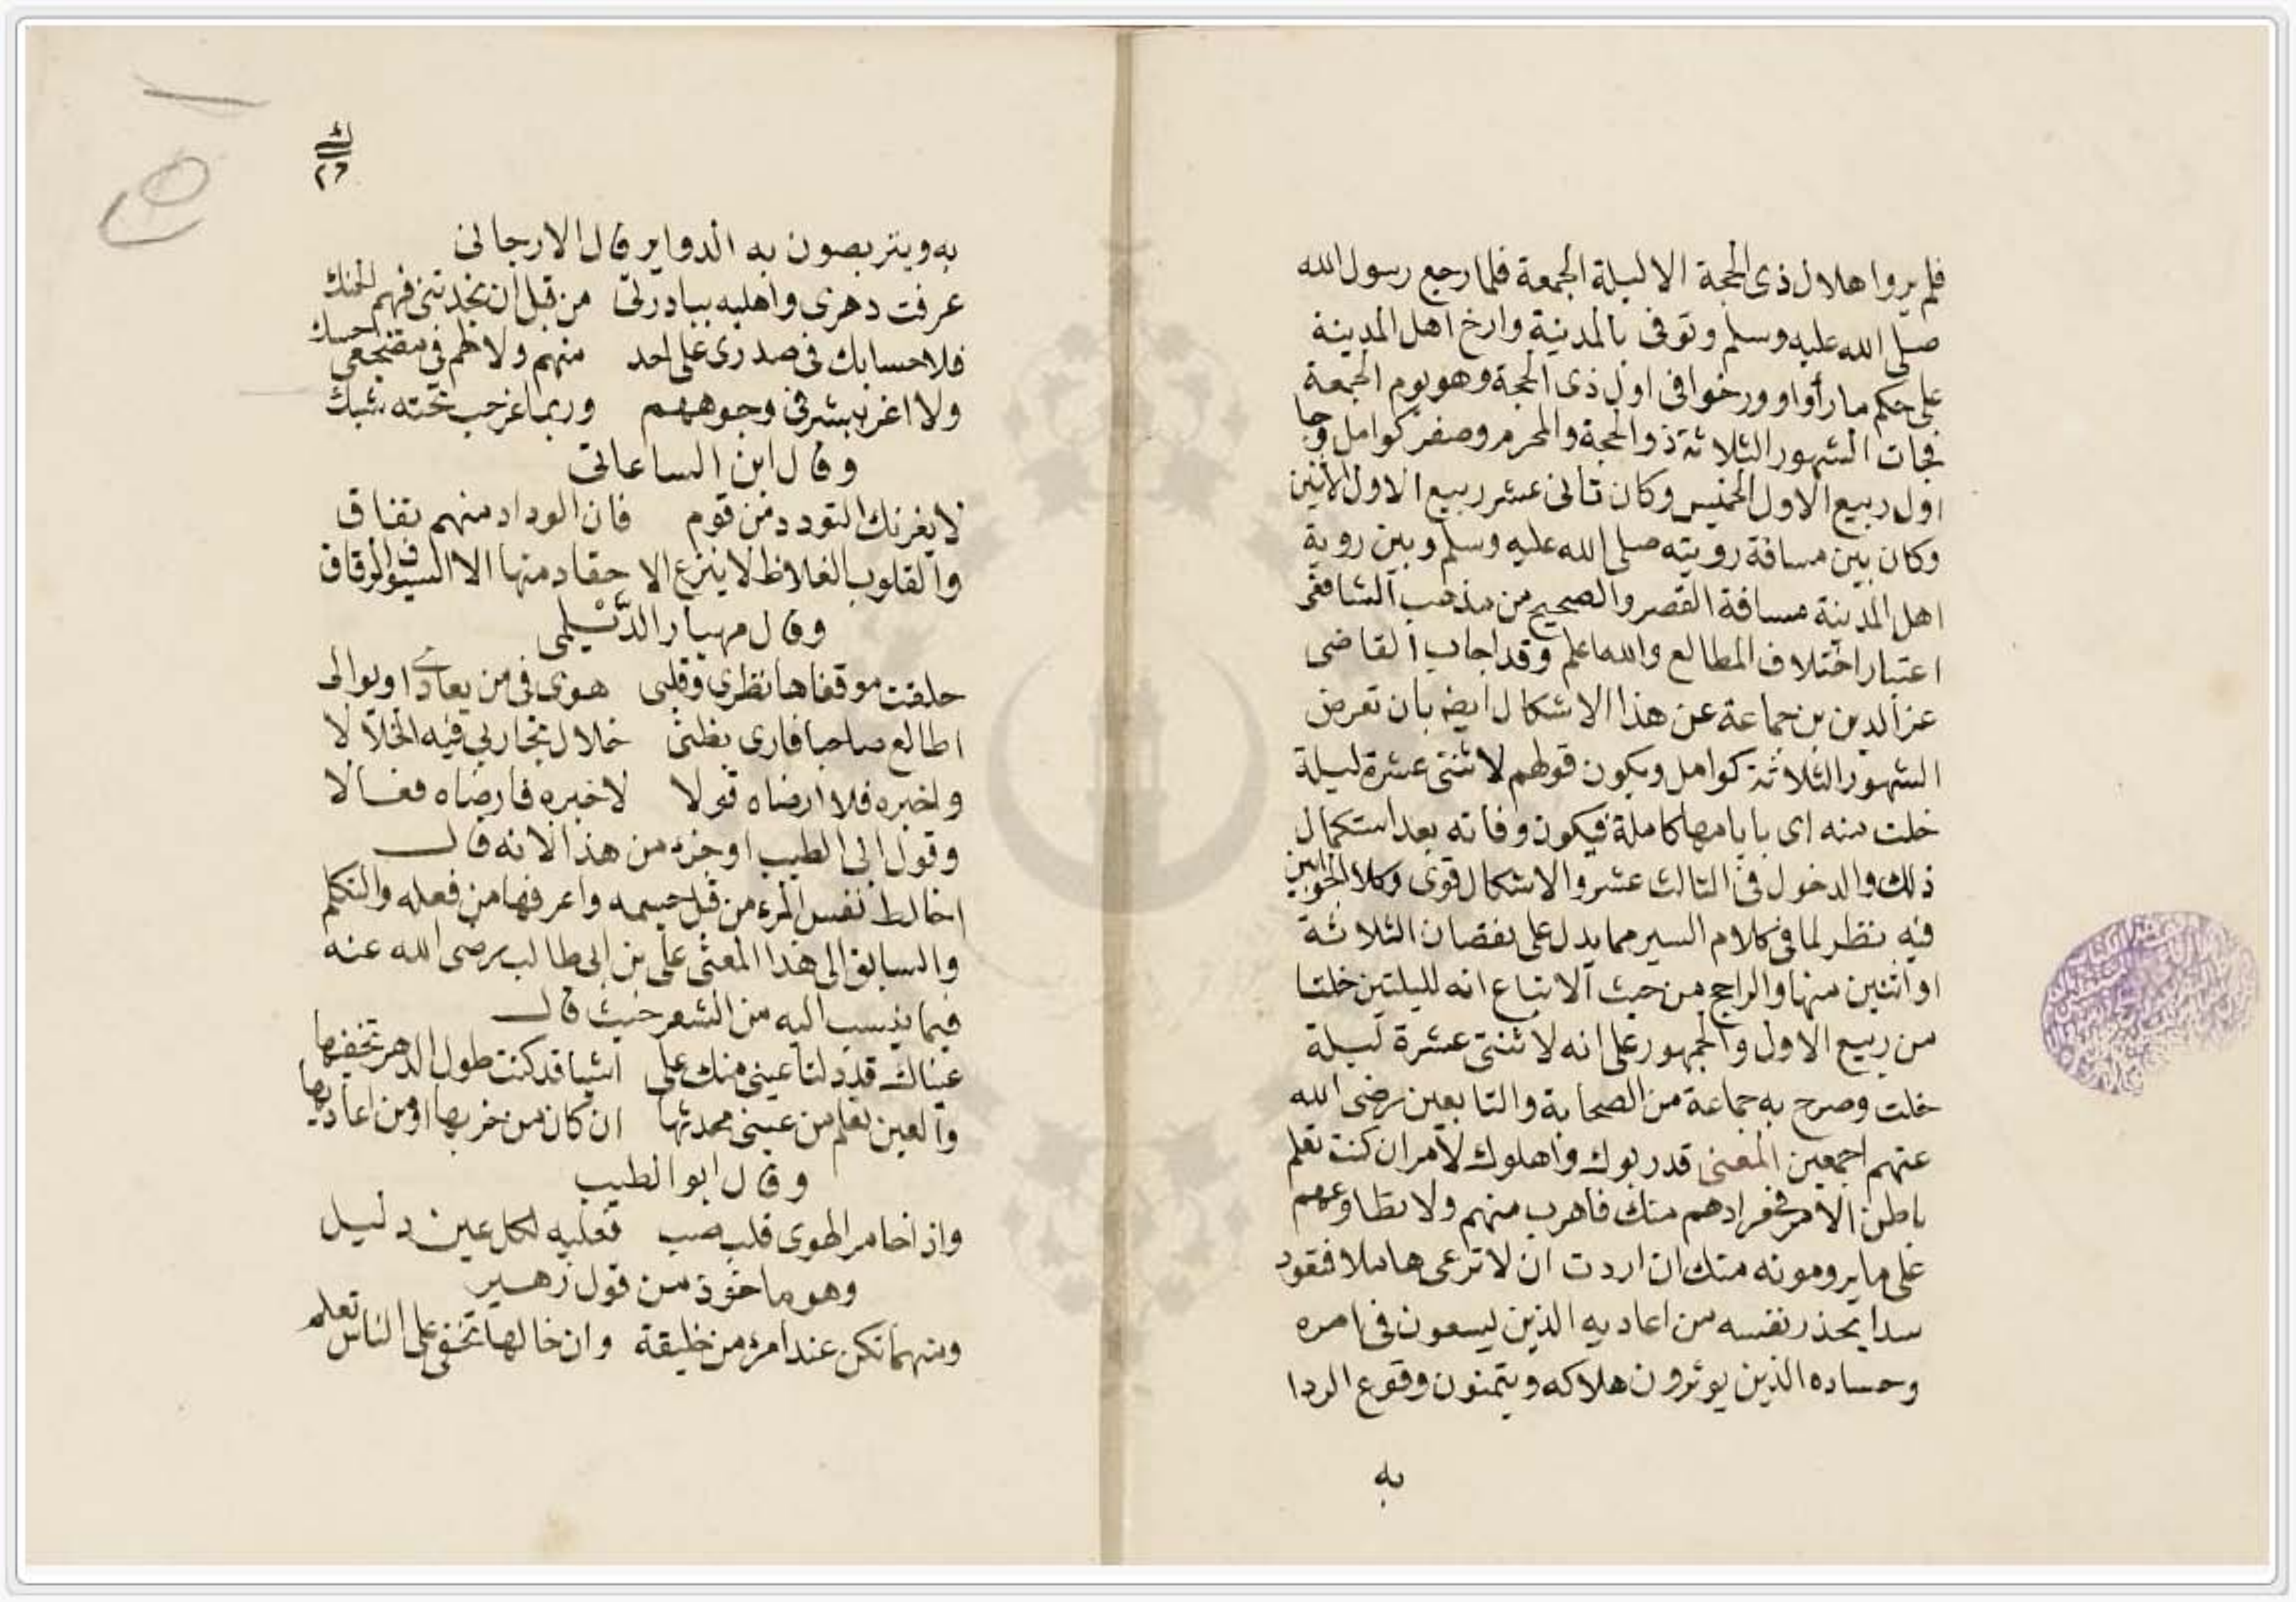 فلم يروا هلال ذى الحجة الا ليلة الجمعة فلما رجع رسول الله
صلى الله عليه وسلم وتوفى بالمدينة وارخ اهل المدينة
على حكم ما رأوا وورخوا فى اول ذى الحجة وهو يوم الجمعة
فجات الشهور الثلاثة ذو الحجة والمحرم وصفر كوامل وجا
اول ربيع الاول الخميس وكان ثانى عشر ربيع الاول الاثنين
وكان بين مسافة رويته صلى الله عليه وسلم وبين روية
اهل المدينة مسافة القصر والصحيح من مذهب الشافعى
اعتبار اختلاف المطالع والله اعلم وقد اجاب القاضى
عز الدين بن جماعة عن هذا الاشكال ايضه بان تفرض
الشهور الثلاثة كوامل ويكون قولهم لاثنتى عشرة ليلة
خلت منه اى بايامها كاملة فيكون وفاته بعد استكمال
ذلك والدخول فى الثالث عشر والاشكال قوى وكلا الجوابين
فيه نظر لما فى كلام السير مما يدل على نقصان الثلاثة
او اثنين منها والراجح من حيث الاتباع انه لليلتين خلتا
من ربيع الاول والجمهور على انه لاثنتى عشرة ليلة
خلت وصرح به جماعة من الصحابة والتابعين رضى الله
عنهم اجمعين المعنى قد ربوك واهلوك لامر ان كنت تعلم
باطن الامر فمرادهم منك فاهرب منهم ولا تطاوعهم
على ما يرومونه منك ان اردت ان لا ترعى هاملا فتقود
سدا يحذر نفسه من اعاديه الذين يسعون فى امره
وحساده الذين يوثرون هلاكه ويتمنون وقوع الردا
به
٢٦
به ويتربصون به الدواير قال الارجانى
عرفت دهرى واهليه ببادرتى من قبل ان نجدتنى فيهم الحنك
فلا حسابك فى صدرى على احد منهم ولا لهم فى مضجعى حسك
ولا اغر ببشر فى وجوههم وربما غر حب تحته شبك
وقال ابن الساعاتى
لا يغرنك التودد من قوم فان الوداد منهم نفاق
والقلوب الغلاظ لا ينزع الاحقاد منها الا السيوف الرقاق
وقال مهيار الديلمى
خلال تجاربى فيه الخلالا اطالع صاحبا فارى بظنى
واخبره فلا ارضاه قولا لاخبره فارضاه فعالا
وقول ابى الطيب اوجز من هذا لانه قال
اخالط نفس المرء من قبل جسمه واعرفها من فعله والتكلم
والسابق الى هذا المعنى على بن ابى طالب رضى الله عنه
فيما ينسب اليه من الشعر حيث قال
عيناك قد دلتا عينى منك على اشيا قد كنت طول الدهر تخفيها
والعين تعلم من عينى محدثها ان كان من حزبها او من اعاديها
وقال ابو الطيب
واذا خامر الهوى قلب صب فعليه لكل عين دليل
وهو ماخوذ من قول زهير
ومهما تكن عند امرئ من خليقة وان خالها تخفى على الناس تعلم